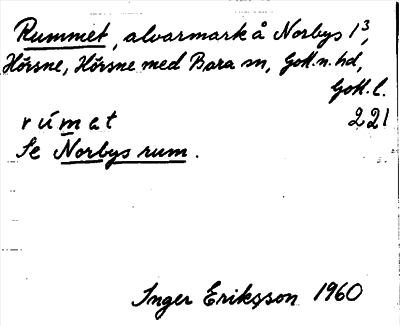 Rummet, alvarmark å Norbys 1³,
Hörsne, Hörsne med Bara sn, Gotl. n. hd,
Gotl. l.
rúmat 221
Se Norbys rum.
Inger Eriksson 1960